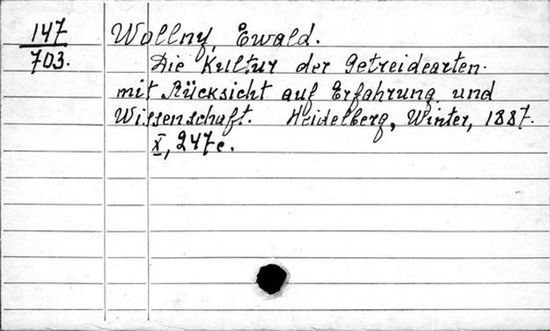 147
703.
Wollny, Ewald.
Die Kultur der Getreidearten
mit Rücksicht auf Erfahrung und
Wissenschaft. Heidelberg, Winter, 1887.
X, 247c.